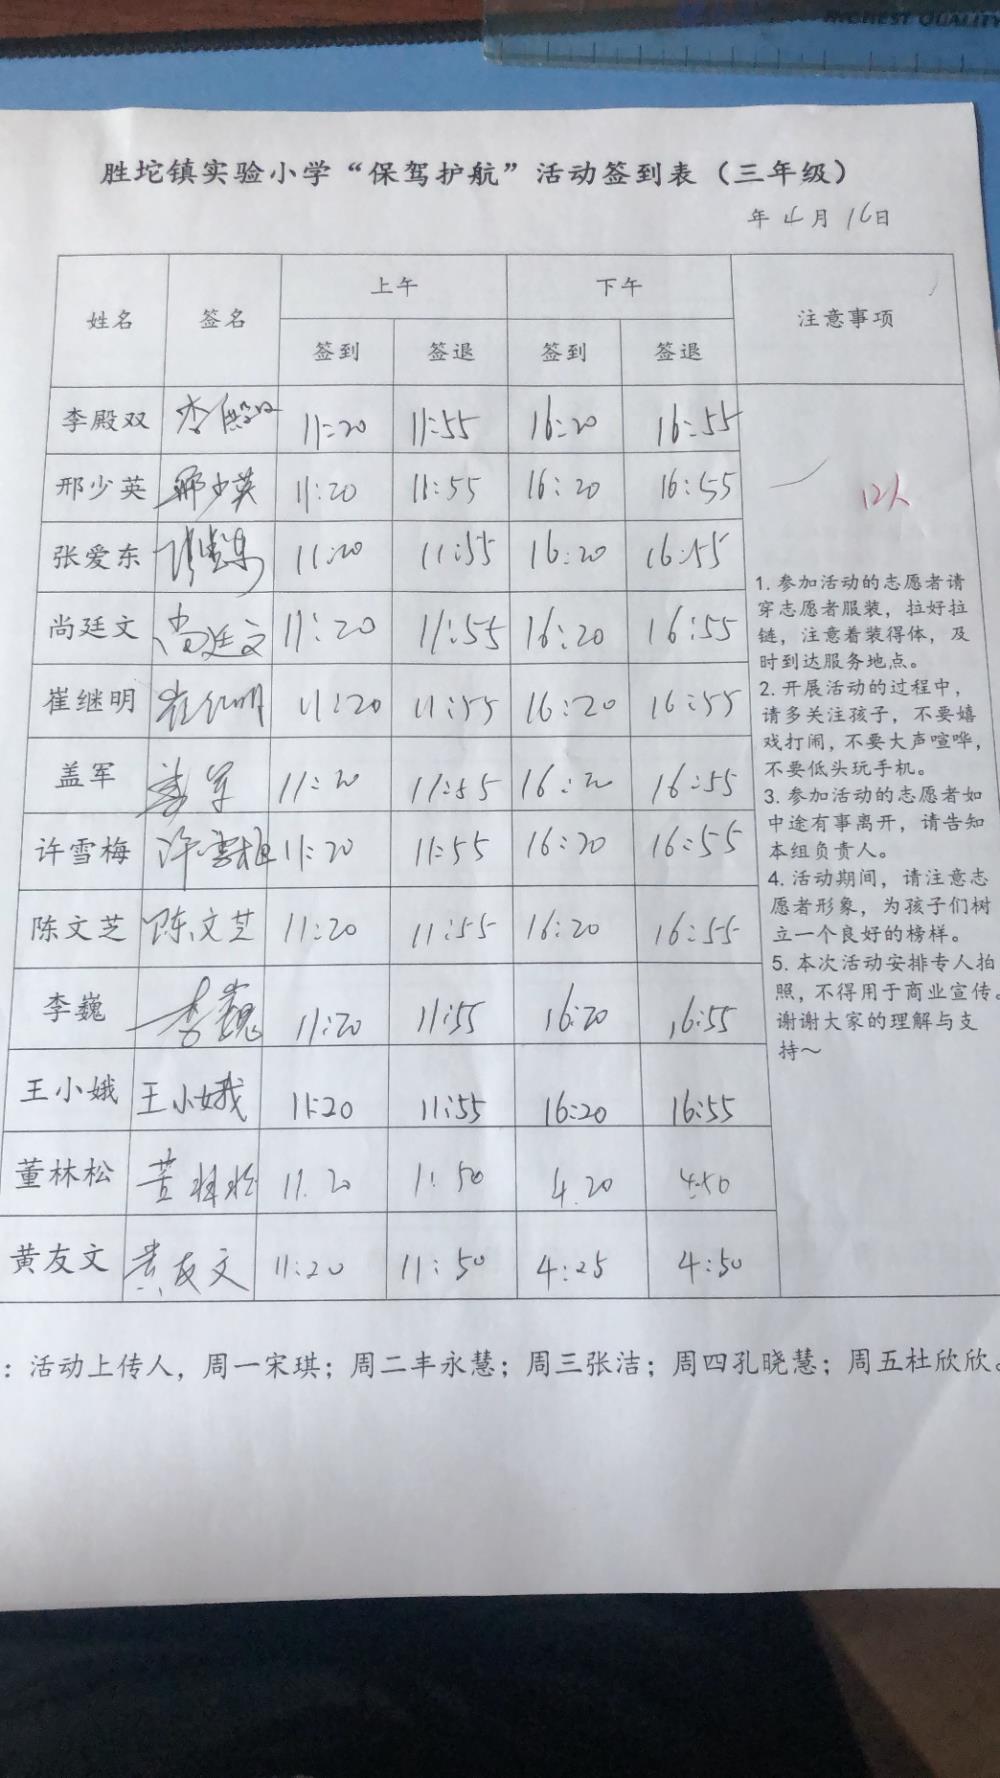 HIGHEST QUALITY
胜坨镇实验小学“保驾护航”活动签到表（三年级）
年 4 月 16 日
姓名 签名 上午 下午 注意事项
签到 签退 签到 签退
李殿双 李殿双 11:20 11:55 16:20 16:55
邢少英 邢少英 11:20 11:55 16:20 16:55
12人
张爱东 张爱东 11:20 11:55 16:20 16:55
尚廷文 尚廷文 11:20 11:55 16:20 16:55
崔继明 崔红明 11:20 11:55 16:20 16:55
盖军 盖军 11:20 11:55 16:20 16:55
许雪梅 许雪梅 11:20 11:55 16:20 16:55
陈文芝 陈文芝 11:20 11:55 16:20 16:55
李巍 李巍 11:20 11:55 16:20 16:55
王小娥 王小娥 11:20 11:55 16:20 16:55
董林松 董林松 11.20 1:50 4.20 4:50
黄友文 黄友文 11:20 11:50 4:25 4:50
1. 参加活动的志愿者请
穿志愿者服装，拉好拉
链，注意着装得体，及
时到达服务地点。
2. 开展活动的过程中，
请多关注孩子，不要嬉
戏打闹，不要大声喧哗，
不要低头玩手机。
3. 参加活动的志愿者如
中途有事离开，请告知
本组负责人。
4. 活动期间，请注意志
愿者形象，为孩子们树
立一个良好的榜样。
5. 本次活动安排专人拍
照，不得用于商业宣传。
谢谢大家的理解与支
持～
：活动上传人，周一宋琪；周二丰永慧；周三张洁；周四孔晓慧；周五杜欣欣。